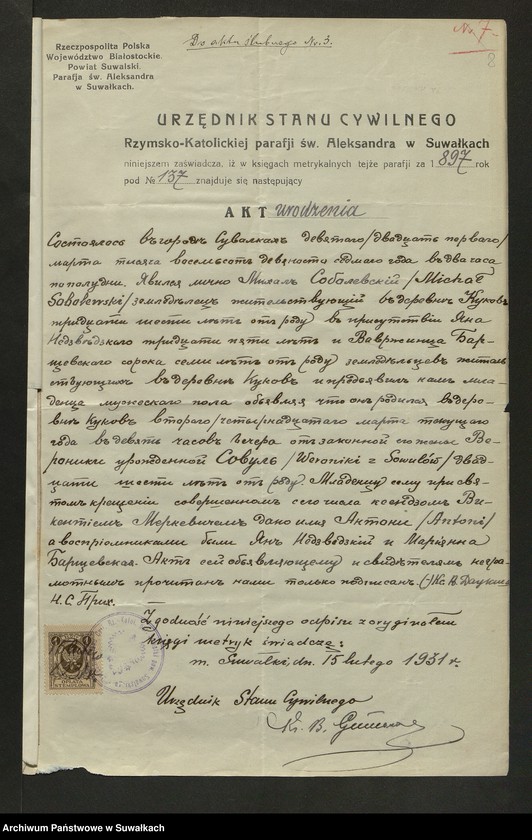 Do aktu ślubnego No. 3.
No 7
8
Rzeczpospolita Polska
Województwo Białostockie,
Powiat Suwalski.
Parafja św. Aleksandra
w Suwałkach.
URZĘDNIK STANU CYWILNEGO
Rzymsko-Katolickiej parafji św. Aleksandra w Suwałkach
niniejszem zaświadcza, iż w księgach metrykalnych tejże parafji za 1897 rok
pod № 137 znajduje się następujący
AKT urodzenia
Состоялось въ городѣ Сувалкахъ девятаго /двадцать перваго/
марта тысяча восемьсотъ девяносто седьмого года въ два часа
пополудни. Явился лично Михалъ Соболевскій /Michał
Sobolewski/ земледѣлецъ жительствующій въ деревнѣ Куковъ
тридцати шести лѣтъ отъ роду въ присутствіи Яна
Недзвѣдзкаго тридцати пяти лѣтъ и Вавржинца Бар-
щевского сорока семи лѣтъ отъ роду земледѣльцевъ житель-
ствующихъ въ деревнѣ Куковъ и предъявилъ намъ мла-
денца мужескаго пола объявляя что онъ родился въ дерев-
нѣ Куковъ второго /четырнадцатаго марта текущаго
года въ девять часовъ вечера отъ законной его жены Ве-
роники урожденной Совуль /Weroniki z Sowulów/ двад-
цати шести лѣтъ отъ роду. Младенцу сему при свя-
томъ крещеніи совершенномъ сего числа ксендзомъ Ви-
кентіемъ Меркевичемъ дано имя Антони /Antoni/
а воспріемниками были Янъ Недзвѣдзкій и Марьянна
Барщевская. Актъ сей объявляющему и свидѣтелямъ негра-
мотнымъ прочитанъ нами только подписанъ. (-) Кс.
Ч. С. Прих.
Zgodność niniejszego odpisu z oryginałem
księgi metryk świadczę:
m. Suwałki, dn. 15 lutego 1931 r.
OPŁATA
STEMPLOWA
Urzędnik Stanu Cywilnego
Ks. B.
Archiwum Państwowe w Suwałkach